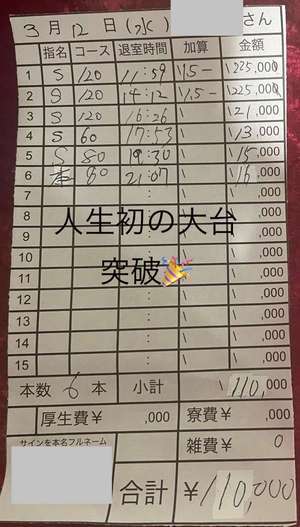 3月12日(水) さん
指名 コース 退室時間 加算 金額
1 S 120 11:59 \ 1.5- \ 225,000
2 S 120 14:12 \ 1.5- \ 225,000
3 S 120 16:26 \ \ 21,000
4 S 60 17:53 \ \ 13,000
5 S 80 19:30 \ \ 15,000
6 本 80 21:07 \ \ 16,000
7 : \ \ ,000
8 : \ \ ,000
9 : \ \ ,000
10 : \ \ ,000
11 : \ \ ,000
12 : \ \ ,000
13 : \ \ ,000
14 : \ \ ,000
15 : \ \ ,000
人生初の大台
突破🎉
本数 6 本 小計 \ 110,000
厚生費¥ ,000 寮費¥ ,000
サインを本名フルネーム 雑費¥ 0
合計 ¥110,000